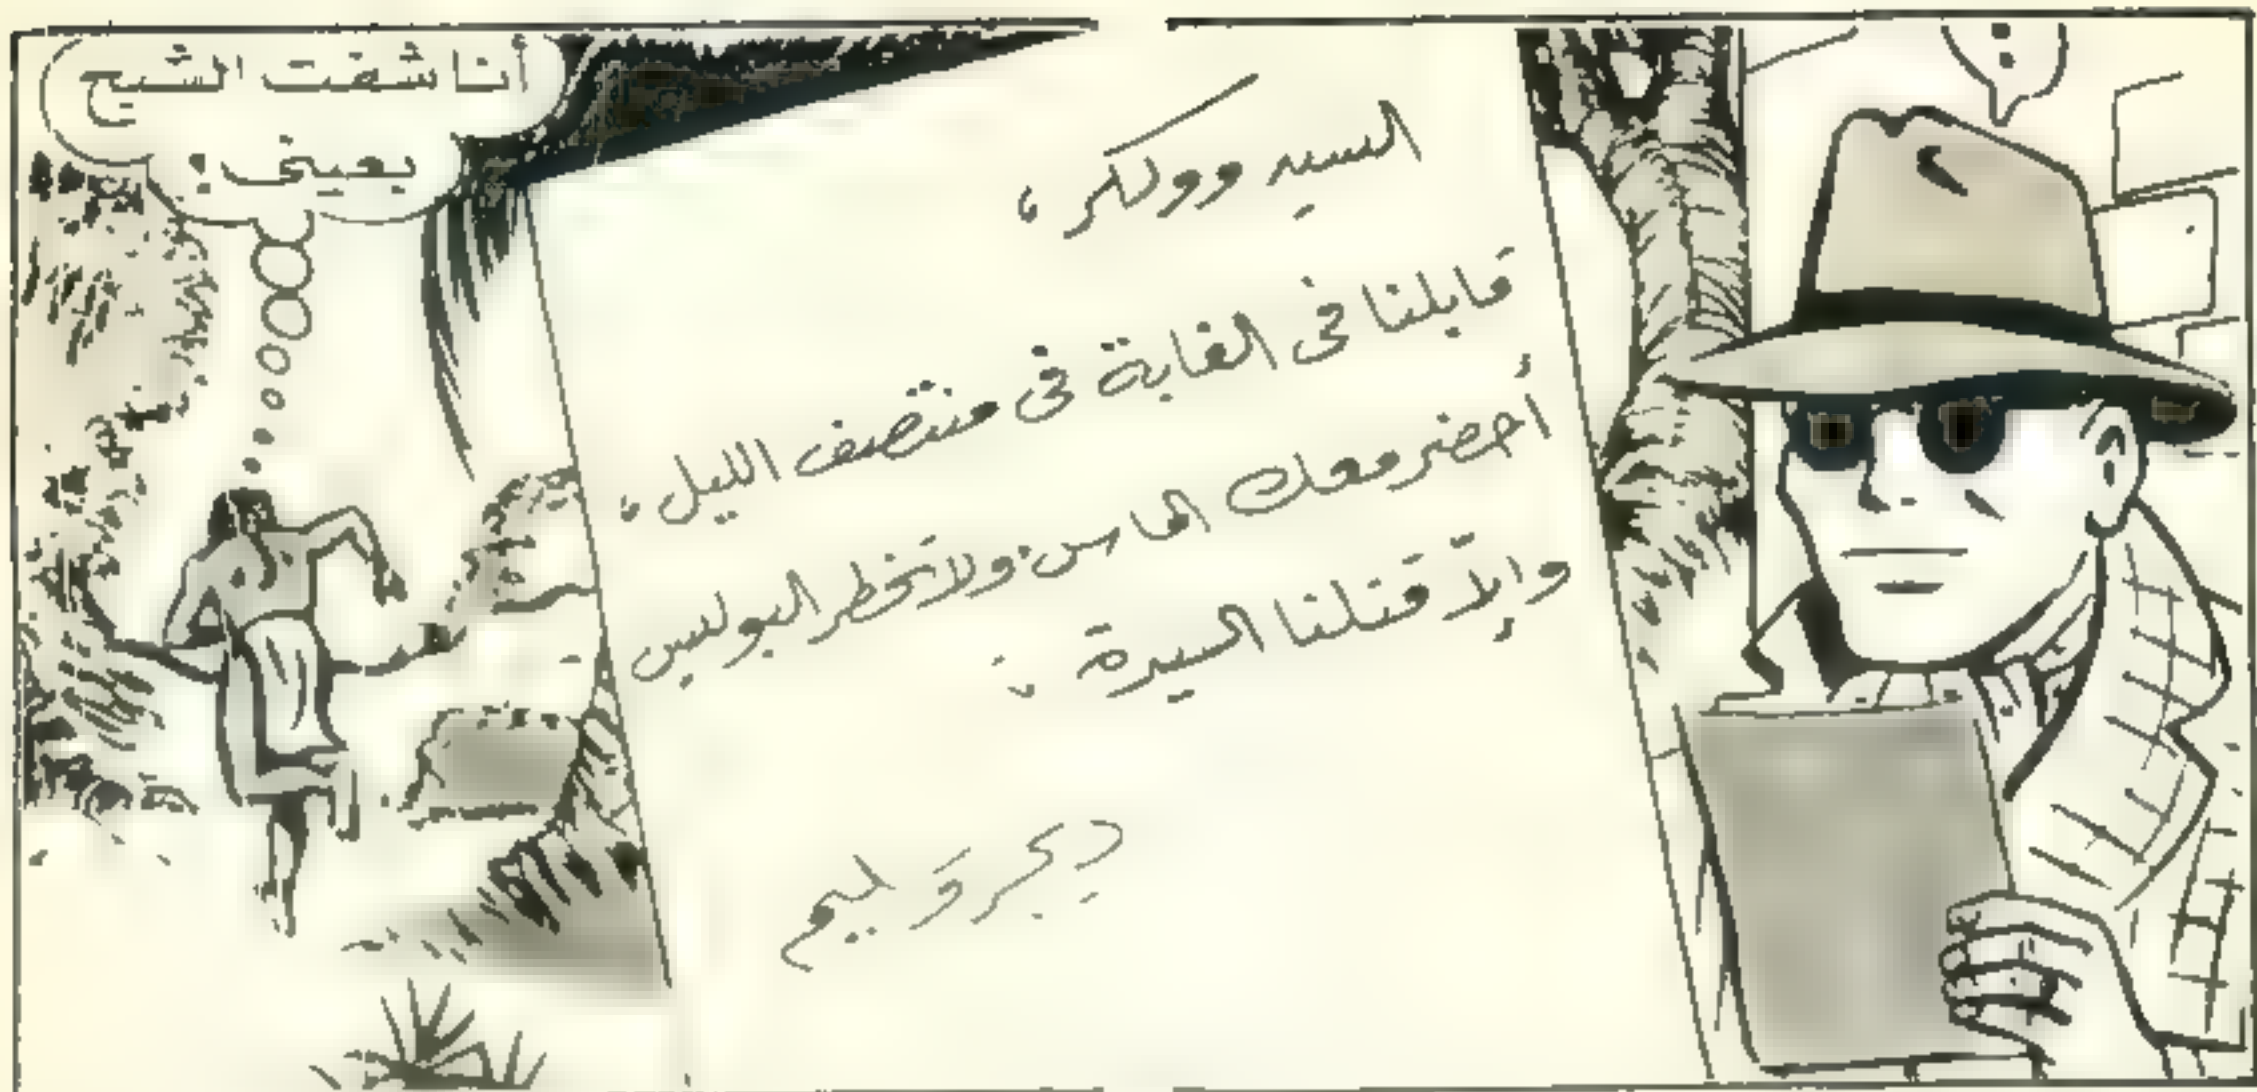 السيد وولكر،
قابلنا فى الغابة فى منتصف الليل،
أحضر معك الماس. ولا تخطر البوليس
وإلاّ قتلنا السيدة :
ديجر وَ ليم
أنا شفت الشبح
بعينى :